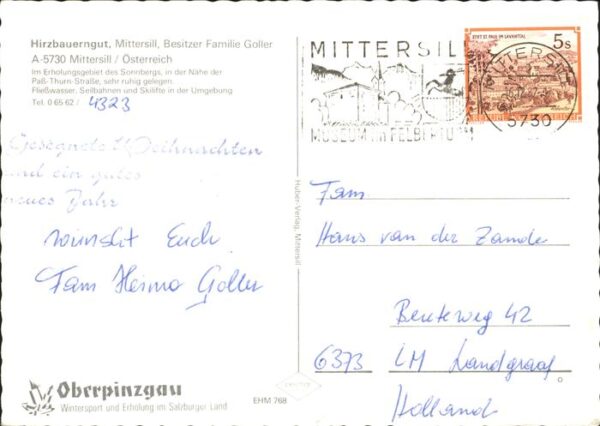 Hirzbauerngut, Mittersill, Besitzer Familie Goller
A-5730 Mittersill / Österreich
Im Erholungsgebiet des Sonnbergs, in der Nähe der
Paß-Thurn-Straße, sehr ruhig gelegen.
Fließwasser, Seilbahnen und Skilifte in der Umgebung
Tel. 0 65 62 / 4323
Gesegnete Weihnachten
und ein gutes
neues Jahr
wünscht Euch
Fam Heimo Goller
Oberpinzgau
Wintersport und Erholung im Salzburger Land
EHM 768
Huber-Verlag, Mittersill
MITTERSILL
MUSEUM IM FELBERTURM
STIFT ST. PAUL IM LAVANTTAL
5s
MITTERSILL
5730
Fam
Hans van der Zande
Beuteweg 42
6373 LM Landgraaf
Holland